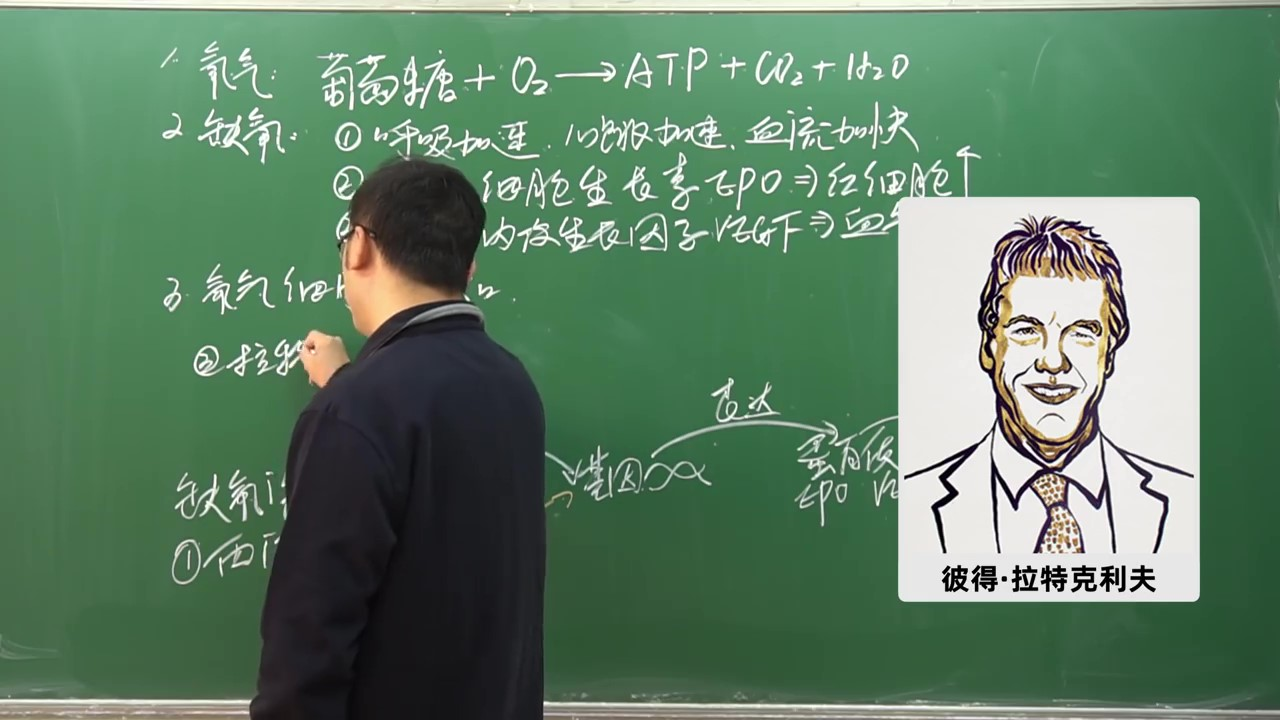 1. 氧气: 葡萄糖 + O₂ → ATP + CO₂ + H₂O
2. 缺氧: ① 呼吸加速、心跳加速、血流加快
② 细胞生长素EPO ⇒ 红细胞↑
内皮生长因子VEGF ⇒ 血
3. 氧气 细
② 拉特
表达
基因 蛋白质
缺氧 EPO
①西
彼得·拉特克利夫